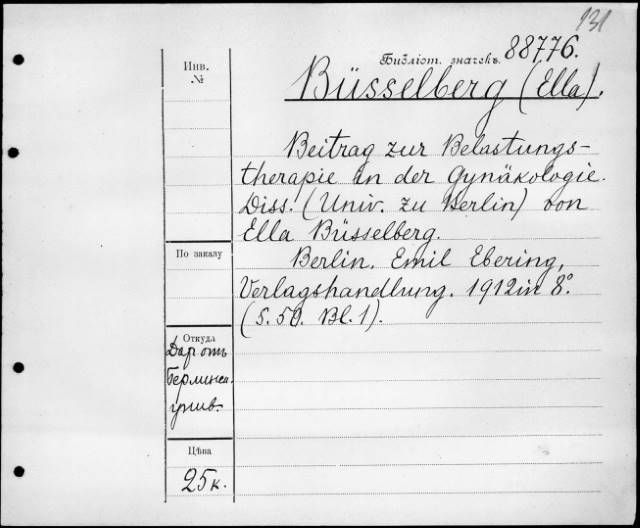 131
Библіот. значекъ. 88776.
Büsselberg (Ella).
Инв.
№
Beitrag zur Belastungs-
therapie in der Gynäkologie.
Diss. (Univ. zu Berlin) von
Ella Büsselberg.
По заказу
Berlin. Emil Ebering,
Verlagshandlung. 1912 in 8°.
(S. 50. Bl. 1).
Откуда
Даръ отъ
Берлинск.
унив.
Цѣна
25 к.